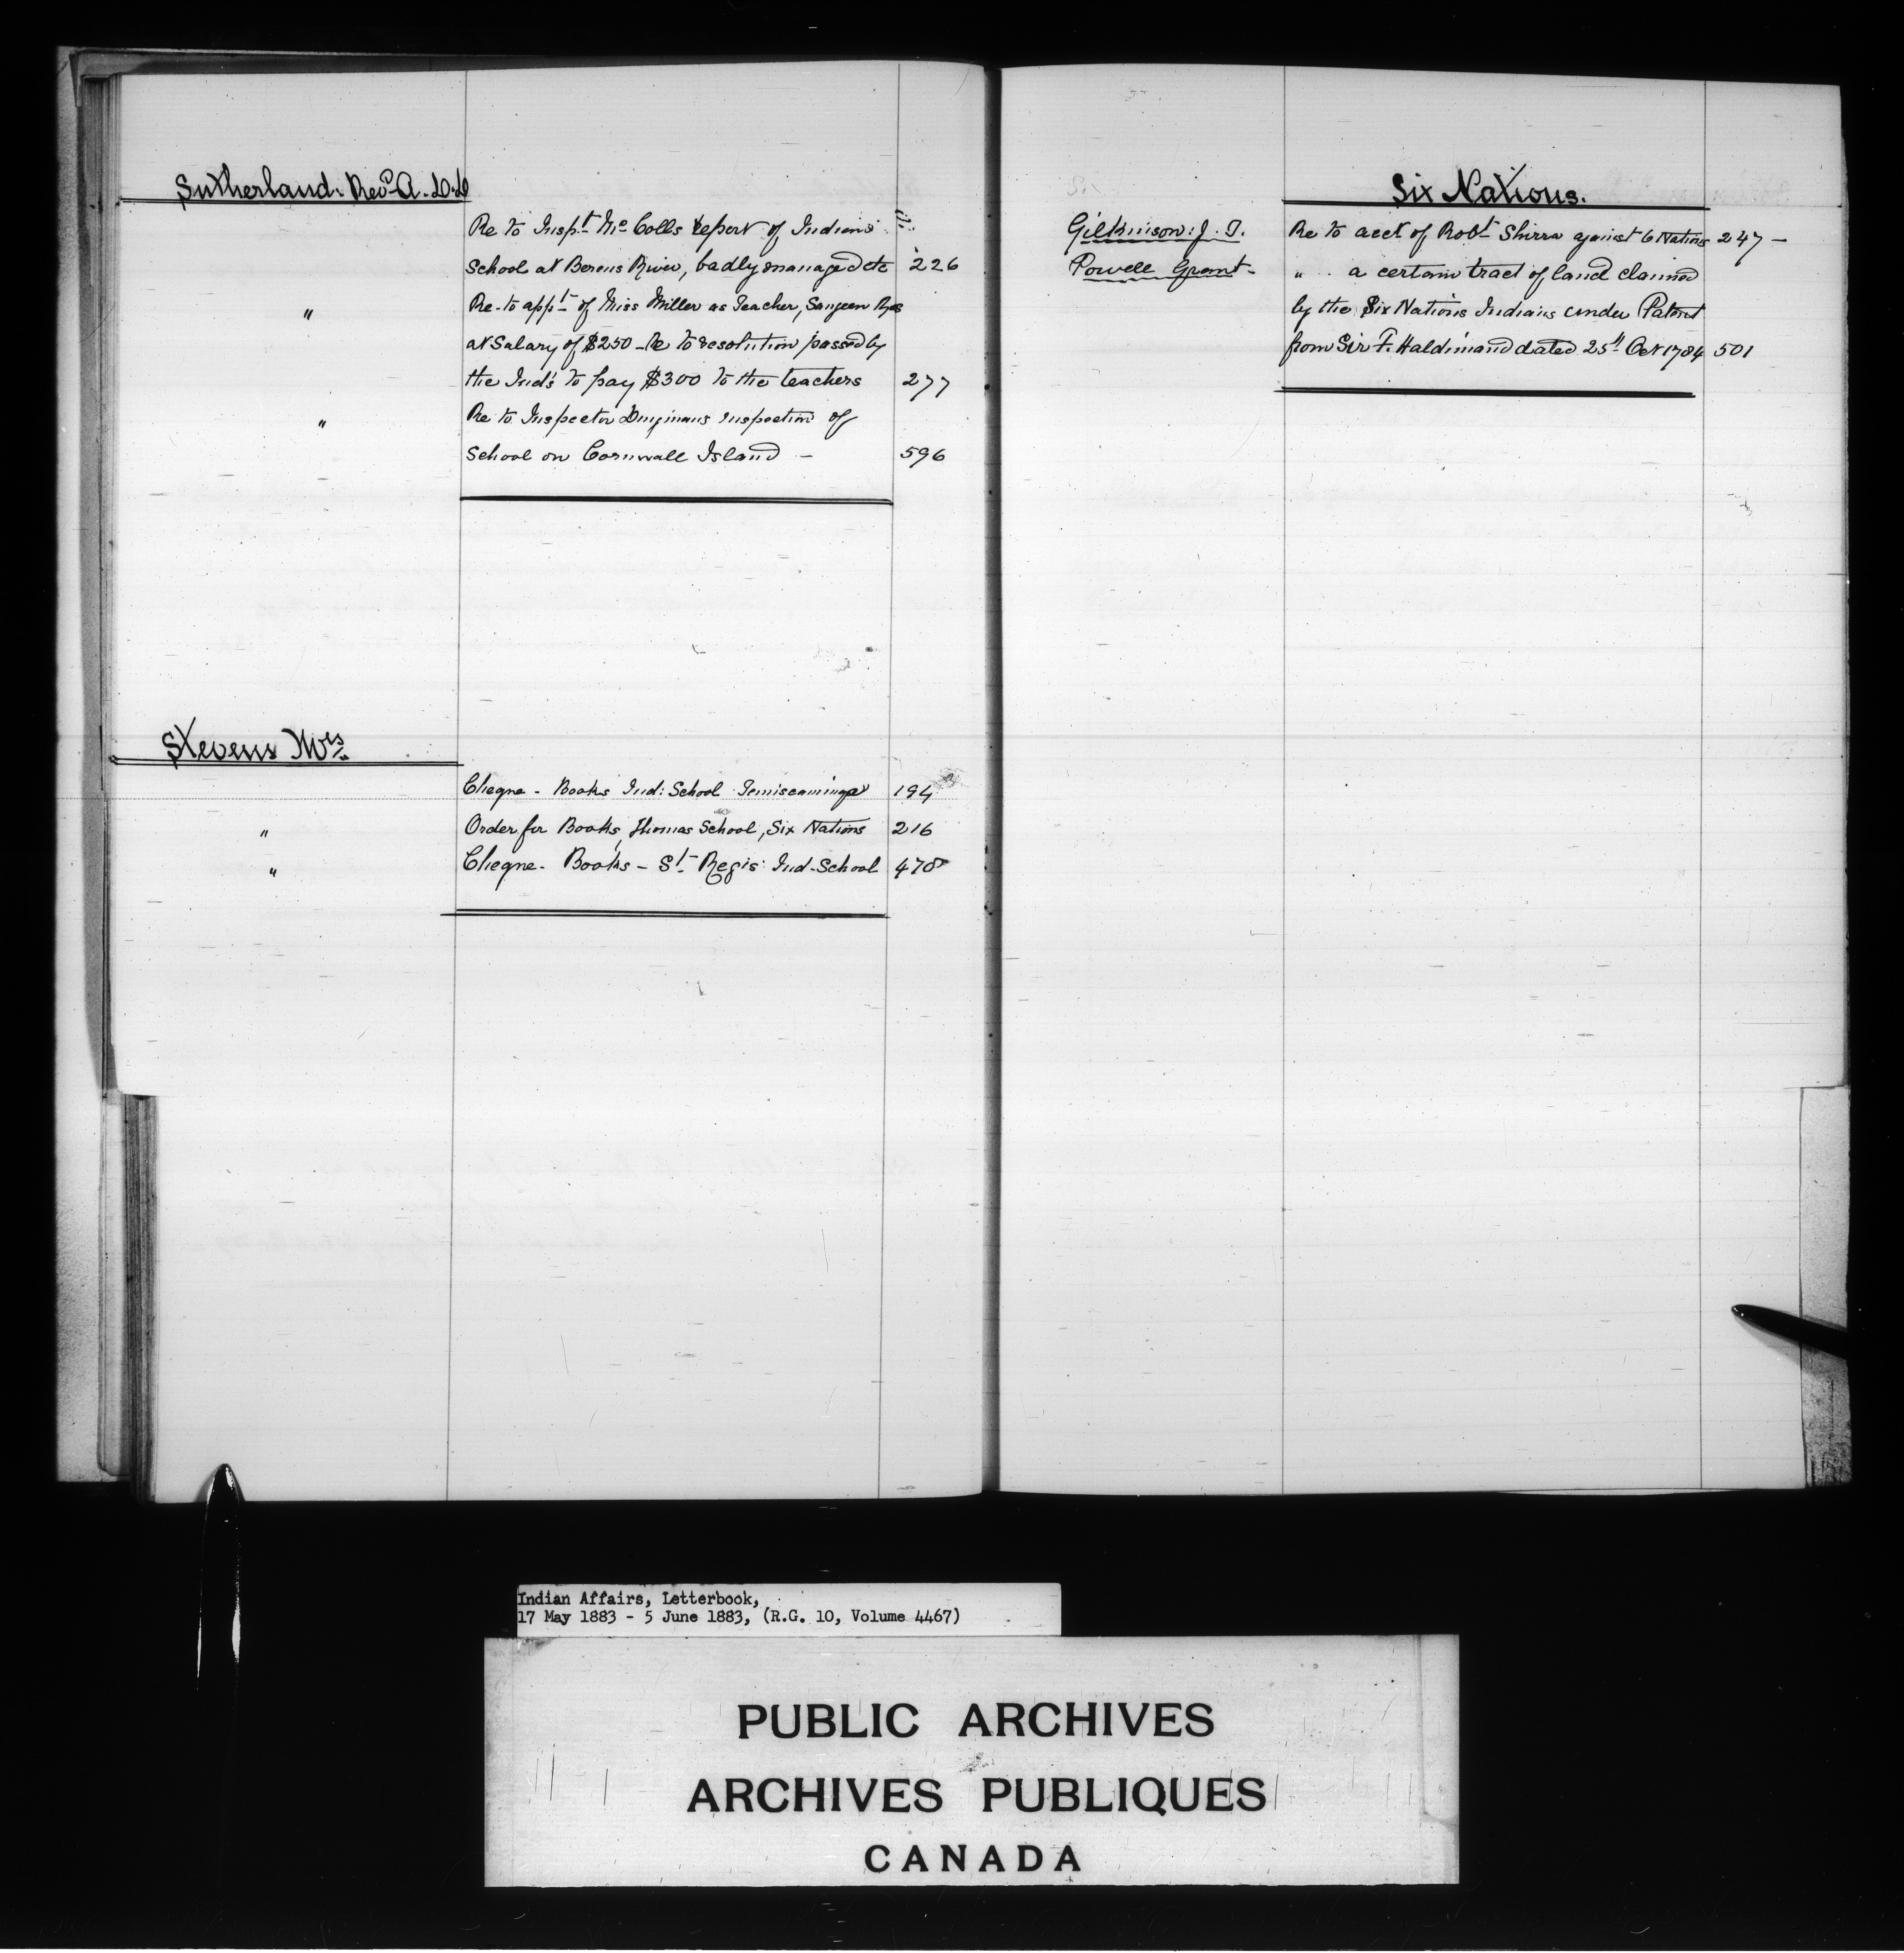 Sutherland: Revd A. D.D
Re to Inspt McColls report of Indians
School at Berens River, badly managed etc 226
" Re-to appt of Miss Miller as Teacher, Saugeen Res
at Salary of $250 - Re to resolution passed by
the Inds to pay $300 to the teachers 277
" Re to Inspector inspection of
School on Cornwall Island - 596
Stevens Mrs
Cheque - Books Ind: School Temiscamingue 194
" Order for Books, Thomas School, Six Nations 216
" Cheque - Books - St Regis Ind. School 478
Six Nations.
Gilkinson: J. T. Re to acct of Robt Shirra against 6 Nations 247 -
Powell Grant - " a certain tract of land claimed
by the Six Nations Indians under Patent
from Sir F. Haldimand dated 25th Oct 1784 501
Indian Affairs, Letterbook,
17 May 1883 - 5 June 1883, (R.G. 10, Volume 4467)
PUBLIC ARCHIVES
ARCHIVES PUBLIQUES
CANADA